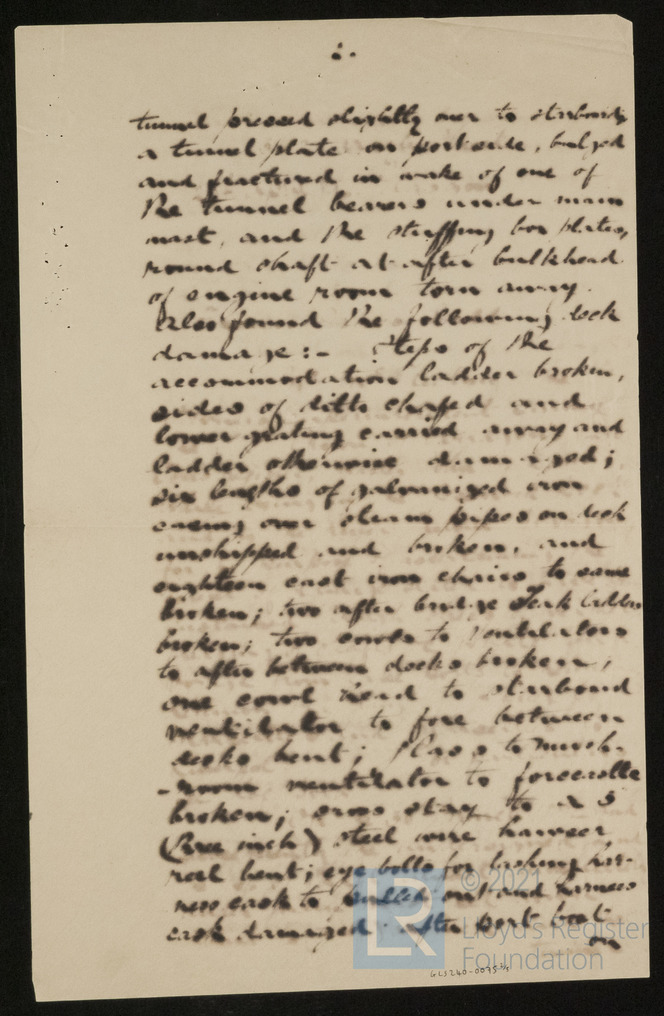 2.
tunnel pressed slightly over to starboard,
a tunnel plate on port side, bulged
and fractured in wake of one of
the tunnel bearers under main
mast, and the stuffing box plates,
round shaft at after bulkhead
of engine room torn away.
Also found the following deck
damage:- Steps of the
accommodation ladder broken,
sides of ditto chafed and
lower grating carried away and
ladder otherwise damaged;
six lengths of galvanized iron
casing over steam pipes on deck
unshipped and broken, and
eighteen cast iron chairs to same
broken; two after bridge Teak ladders
broken; two cowls to ventilators
to after between decks broken;
one cowl head to starboard
ventilator to fore between
decks bent; to mush-
-room ventilator to forecastle
broken; cross stay to a 3
(three inch) steel wire hawser
reel bent; eye bolts for lashing har-
ness cask to pulled out and harness
cask damaged; after port boat
© 2021
Lloyd's Register
Foundation
LR
GLS240-0075